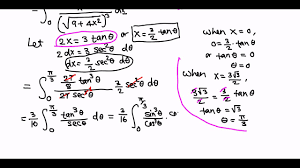 ∫₀ dθ
(√(9+4x²))³
Let 2x = 3 tanθ or x = 3/2 tanθ
2dx = 3 sec²θ dθ
dθ
= ∫₀^(π/3) 27/8 tan³θ 3/2 sec²θ dθ
27 sec³θ
= 3/16 ∫₀^(π/3) tan³θ/secθ dθ = 3/16 ∫₀^(π/3) sin³θ/cos²θ
when x = 0,
0 = 3/2 tanθ
or tanθ = 0
θ = 0
when x = 3√3/2,
3√3/2 = 3/2 tanθ
tanθ = √3
θ = π/3